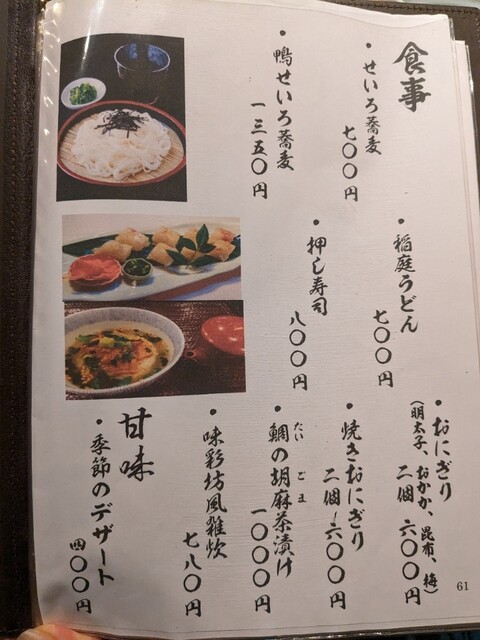 食事
・せいろ蕎麦
七〇〇円
・鴨せいろ蕎麦
一三五〇円
・稲庭うどん
七〇〇円
・押し寿司
八〇〇円
・おにぎり
（明太子、おかか、昆布、梅）
二個 六〇〇円
・焼きおにぎり
二個 六〇〇円
・鯛の胡麻茶漬け
たい ごま
一〇〇〇円
・味彩坊風雑炊
七八〇円
甘味
・季節のデザート
四〇〇円
61